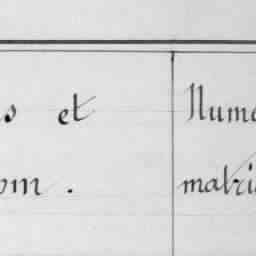 s et
om.
Numé
matri